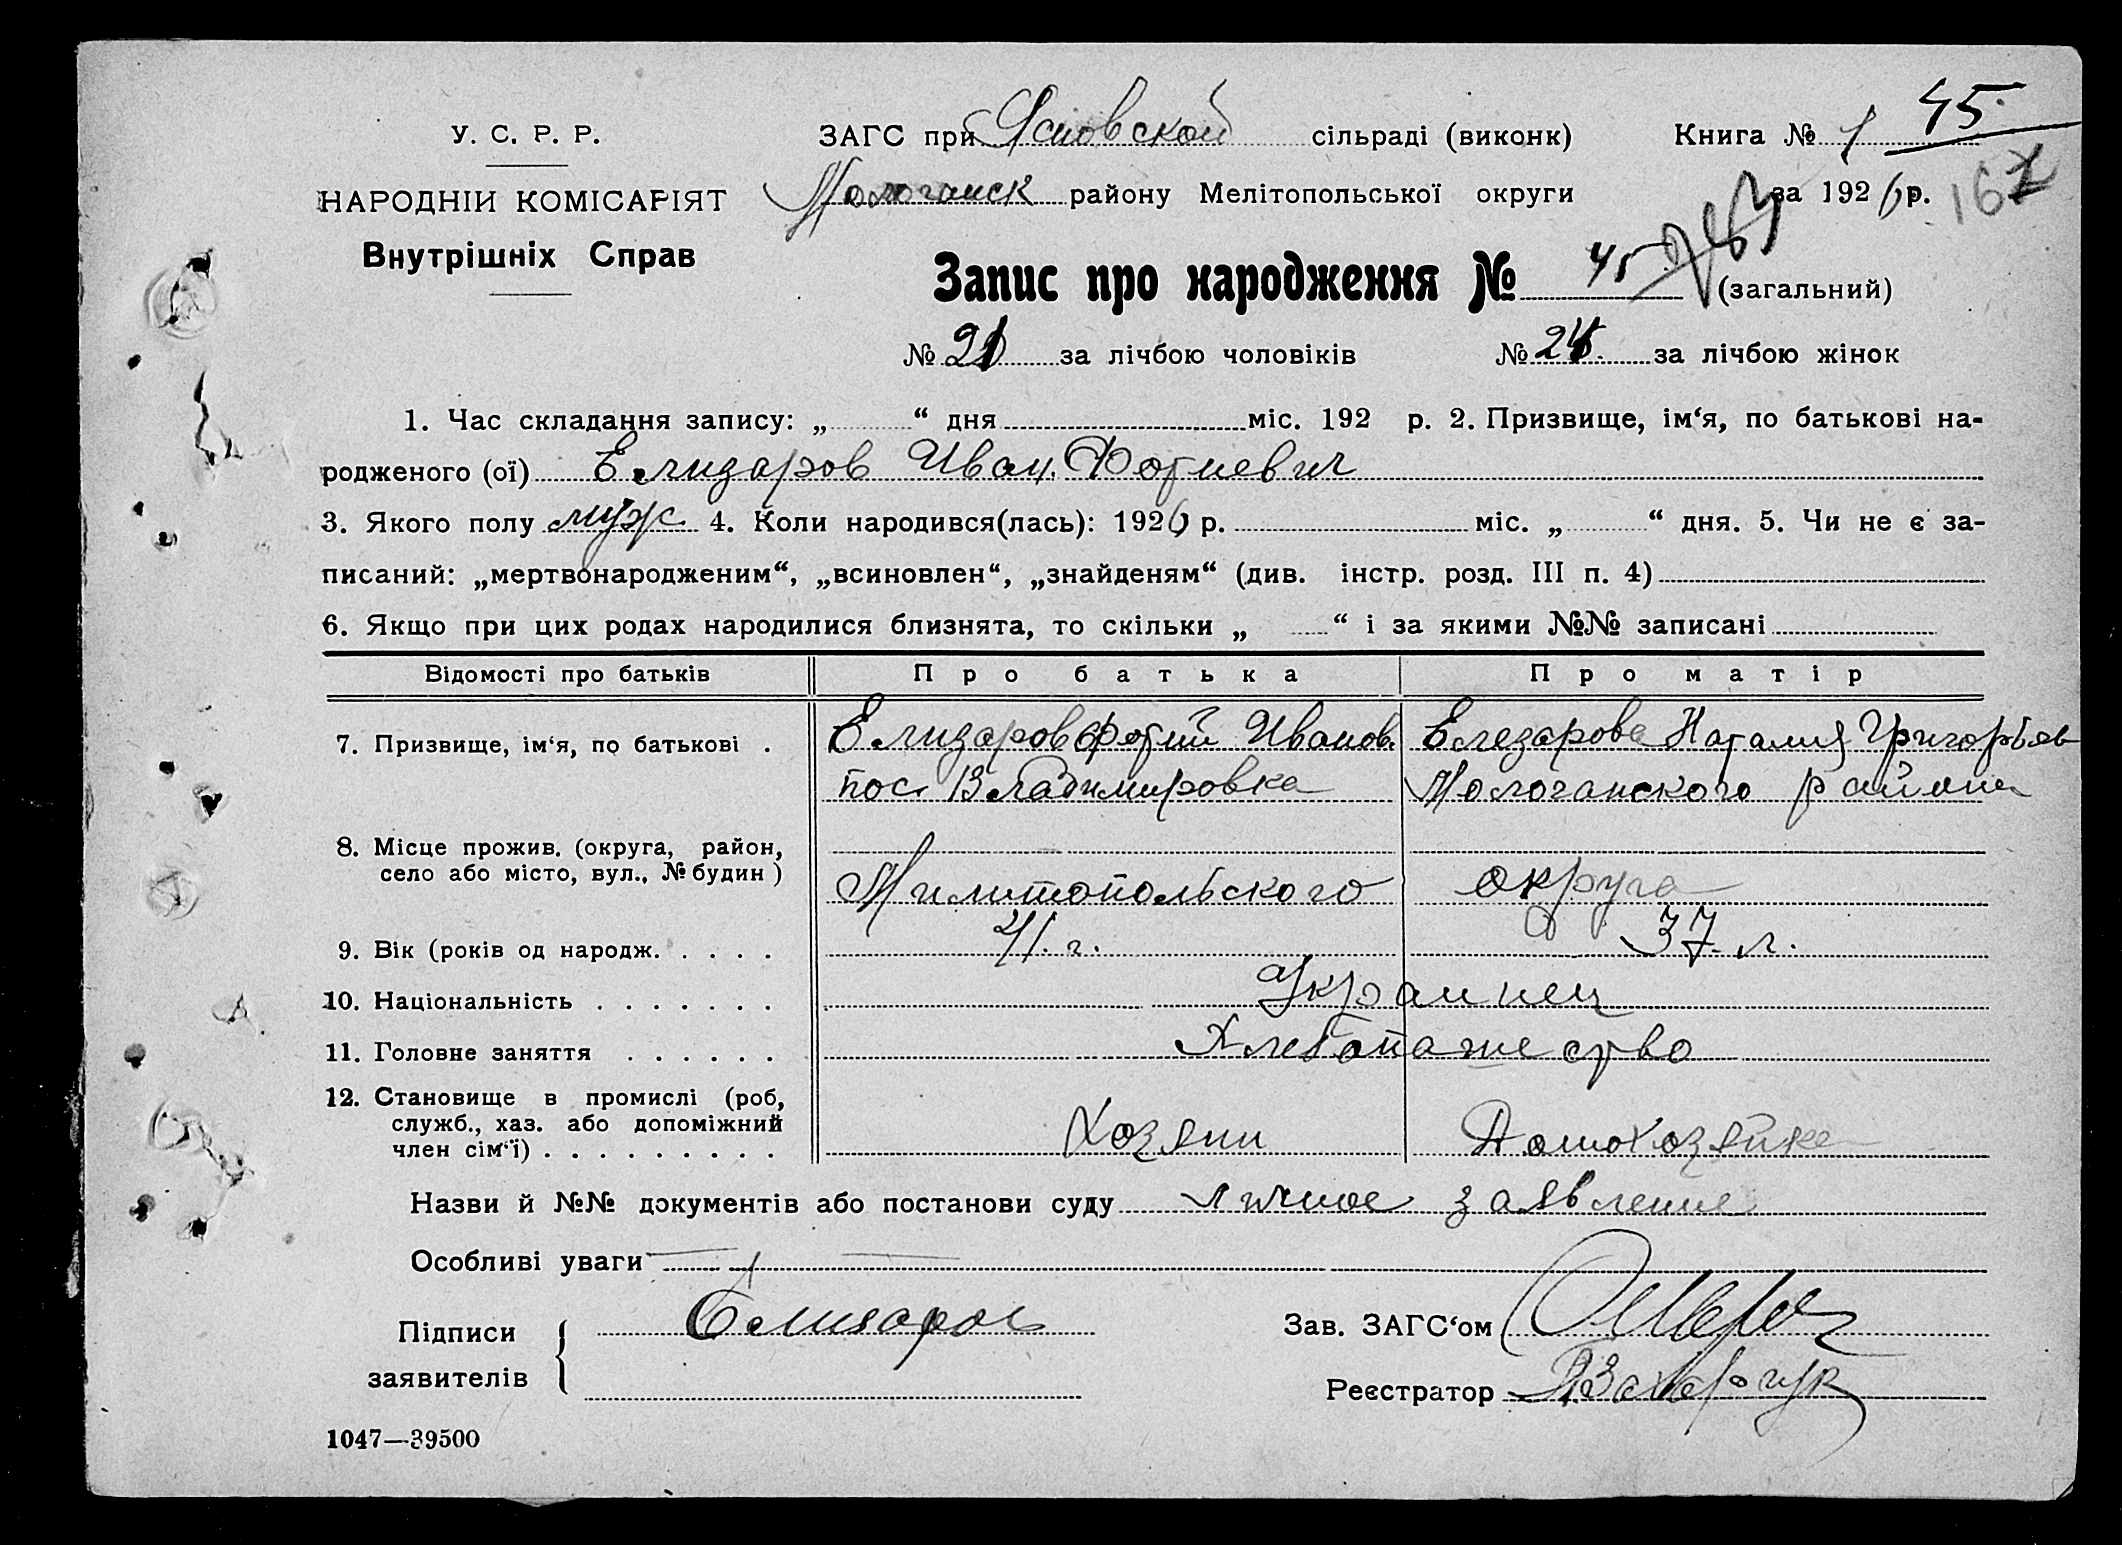 У. С. Р. Р.
НАРОДНІЙ КОМІСАРІЯТ
Внутрішніх Справ
ЗАГС при Ясновской сільраді (виконк) Книга № 1 45
Молочанск району Мелітопольської округи за 1926 р. 162
Запис про народження № 45 (загальний)
№ 21 за лічбою чоловіків № 24 за лічбою жінок
1. Час складання запису: „ “ дня міс. 192 р. 2. Призвище, ім‘я, по батькові на-
родженого (ої) Елизаров Иван Фотиевич
3. Якого полу муж 4. Коли народився(лась): 1926 р. міс. „ “ дня. 5. Чи не є за-
писаний: „мертвонародженим“, „всиновлен“, „знайденям“ (див. інстр. розд. III п. 4)
6. Якщо при цих родах народилися близнята, то скільки „ “ і за якими №№ записані
Відомості про батьків Про батька Про матір
7. Призвище, ім‘я, по батькові . Елизаров Фотий Иванов. Елезарова Наталия Григорьев
пос Владимировка Молочанского района
8. Місце прожив. (округа, район,
село або місто, вул., № будин)
Милитопольского округа
9. Вік (років од народж. . . . . 41. г. 37. л.
10. Національність . . . . . . . Украинец
11. Головне заняття . . . . . . Хлебопашество
12. Становище в промислі (роб,
служб., хаз. або допоміжний
член сім‘ї) . . . . . . . . . Хозяин Домохозяйка
Назви й №№ документів або постанови суду личное заявление
Особливі уваги
Підписи
заявителів
Елизаров
Зав. ЗАГС‘ом
Реєстратор
1047—39500